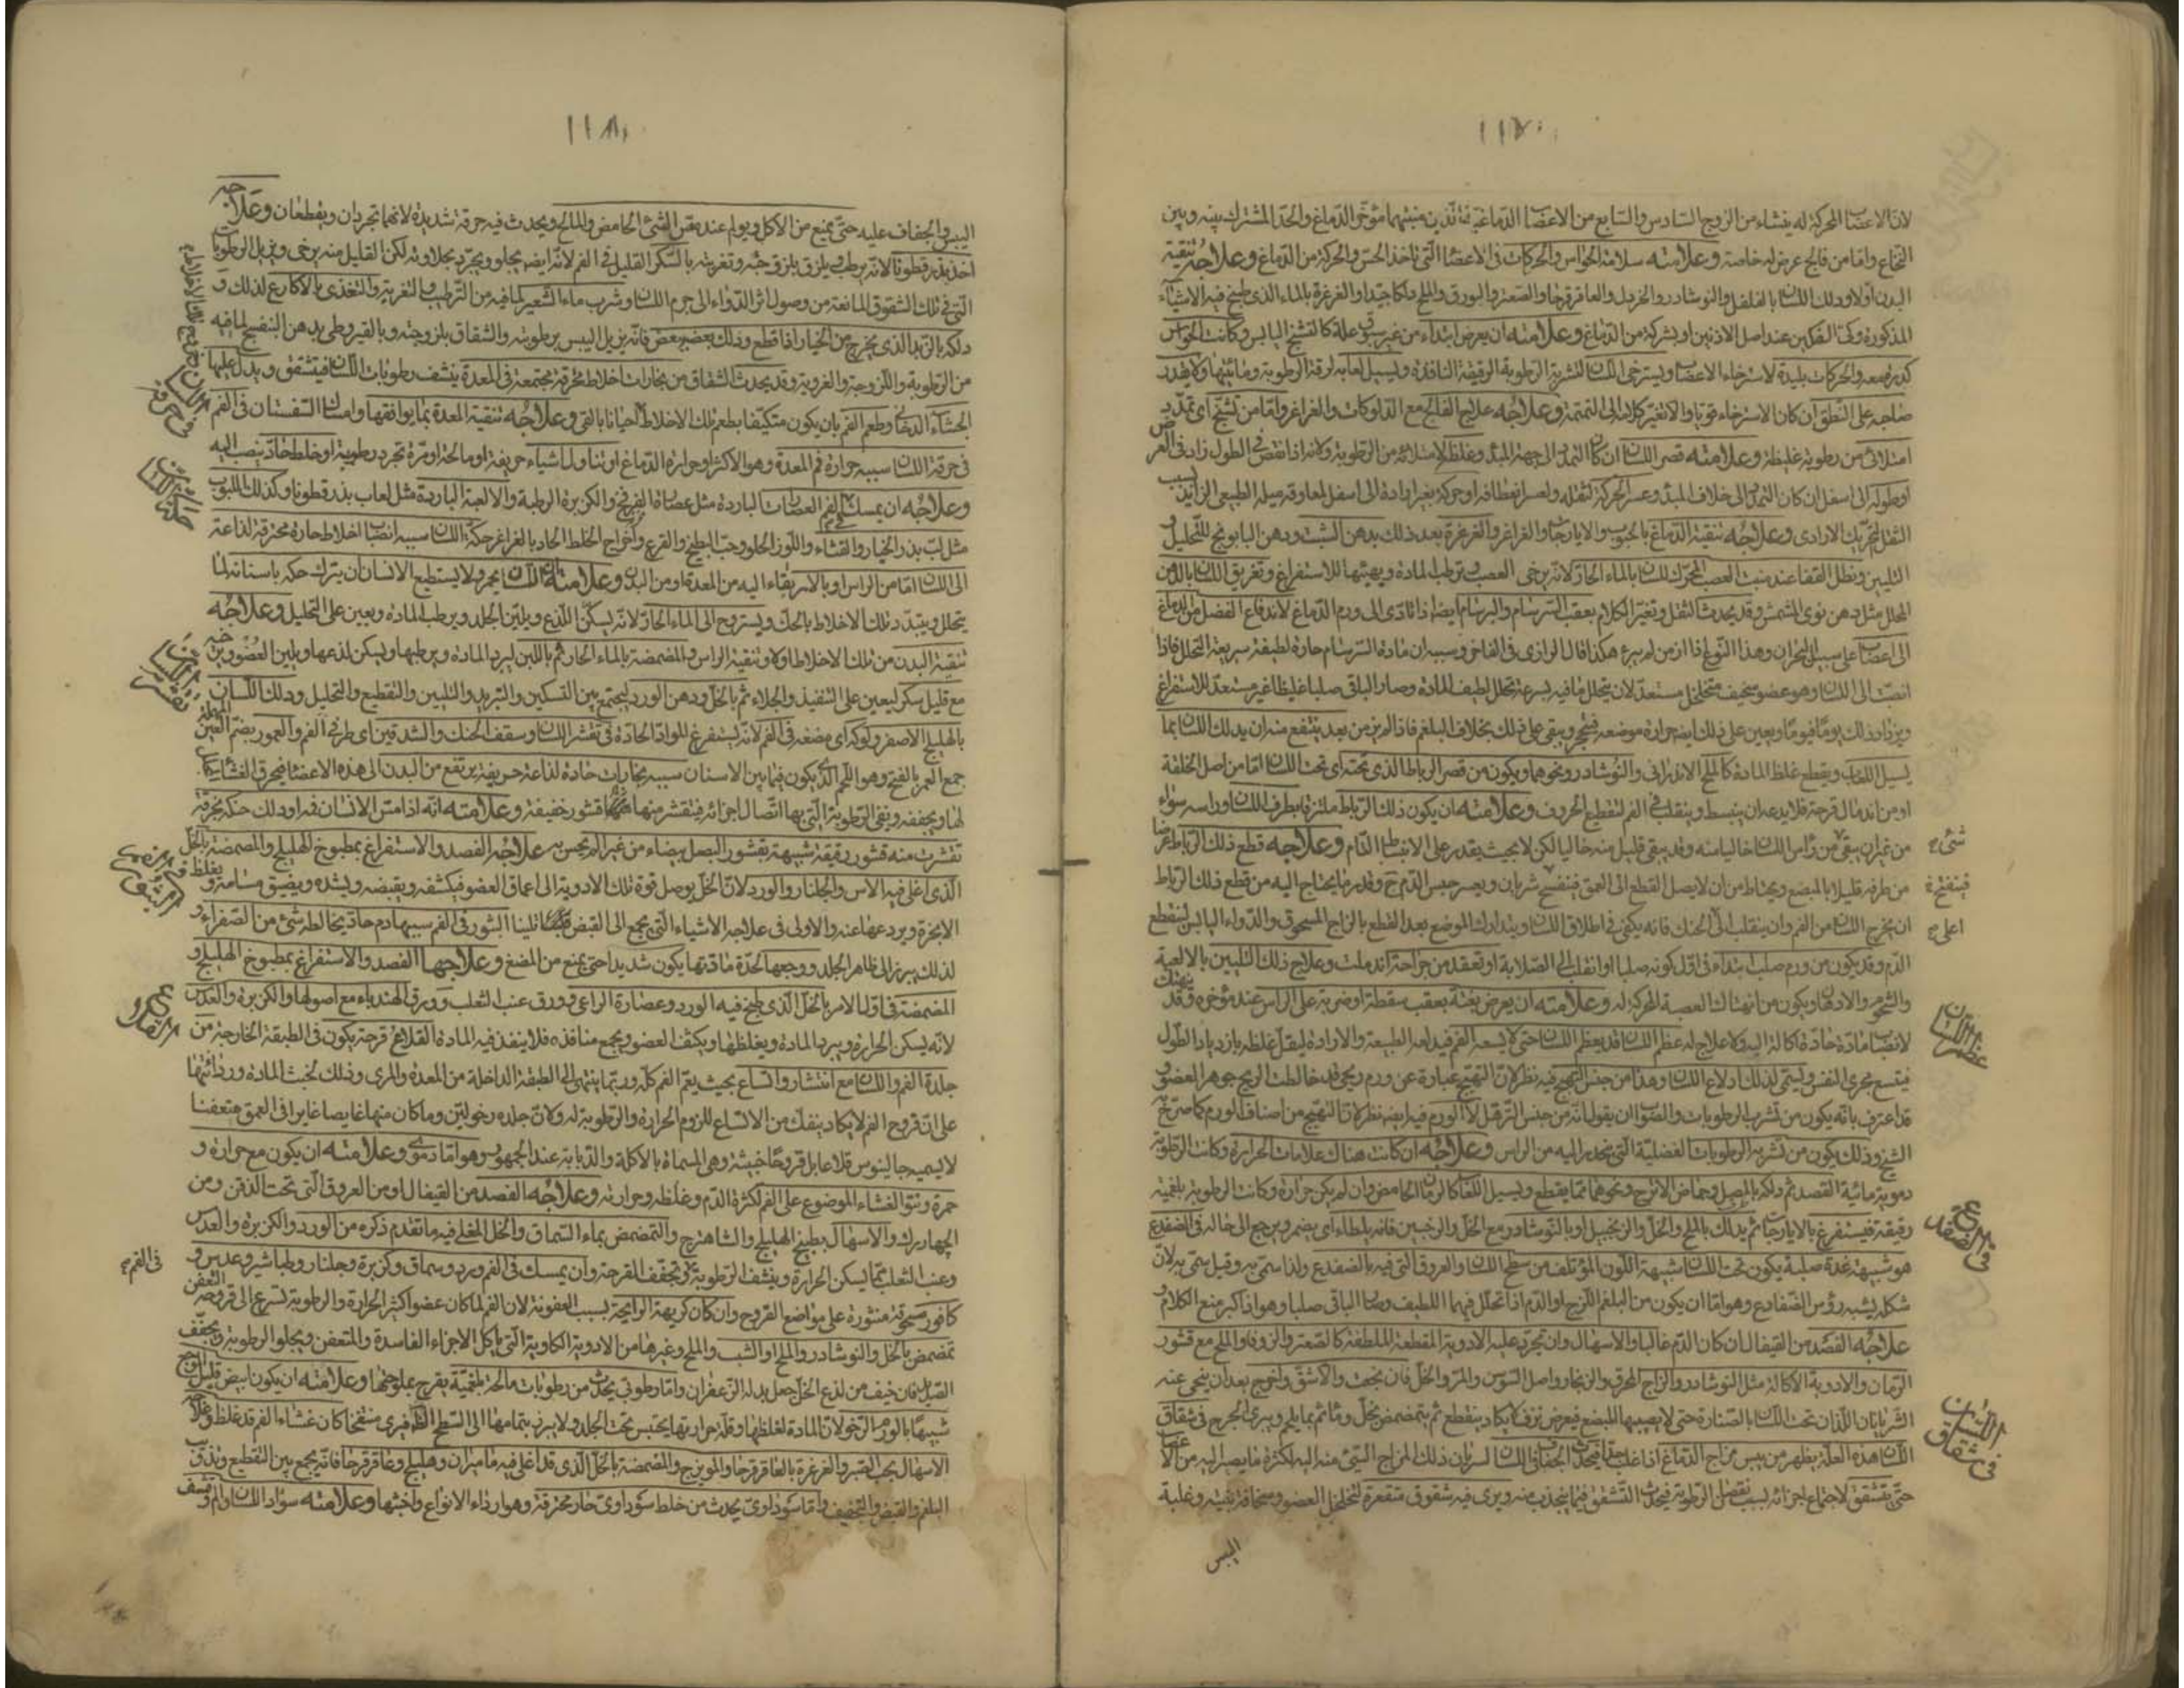 ١١٧
لان الاعصاب المحركة له ينشاء من الزوج السادس والسابع من الاعصاب الدماغية اللذين منبتهما مؤخر الدماغ والحد المشترك بينه وبين
النخاع واما من فالج عرض له خاصة وعلامته سلامة الحواس والحركات في الاعضا التي تاخذ الحس والحركة من الدماغ وعلاجه تنقية
البدن اولا ودلك اللسان بالفلفل والنوشادر والخردل والعاقرقرحا والصعتر والبورق والملح دلكا جيدا والغرغرة بالماء الذي طبخ فيه الاشياء
المذكورة وكى الفكين عند اصل الاذنين او بشركة من الدماغ وعلامته ان يعرض ابتداء من غير سبق علة كالتشنج اليابس وكانت الحواس
كدرة معه والحركات بليدة لاسترخاء الاعصاب ويسترخى اللسان لتشربه الرطوبة الرقيقة النافذة ويسيل لعابه لرقة الرطوبة ومائيتها ولا يقدر
صاحبه على النطق ان كان الاسترخاء قويا والا تغير كلامه الى التمتمة وعلاجه علاج الفالج مع الدلوكات والغراغر واما من تشنج اى تمدد
امتلائى من رطوبة غليظة وعلامته قصر اللسان ان كان التمدد الى جهة المبدء وغلظ لامتلائه من الرطوبة ولانه اذا نقص في الطول زاد في العرض
او طوله الى اسفل ان كان التمدد الى خلاف المبدء وعسر الحركة لثقله ولعسر انعطافه او حركة بغير ارادة الى اسفل لمعاوقة ميله الطبيعى الزايد بسبب
الثقل لتحريك الارادى وعلاجه تنقية الدماغ بالحبوب والايارجات والغراغر والغرغرة بعد ذلك بدهن الشبت ودهن البابونج للتحليل و
التليين ونطل القفا عند منبت العصب المحرك للسان بالماء الحار لانه يرخى العصب ويرطب المادة ويهيئها للاستفراغ وتغريق اللسان بالدهن
المحلل مثل دهن نوى المشمش وقد يحدث الثقل وتغير الكلام بعقب السرسام والبرسام ايضا اذا تادى الى ورم الدماغ لاندفاع الفضل من الدماغ
الى اعصاب على سبيل البحران وهذا النوع اذا ازمن لم يبرء هكذا قال الرازى في الفاخر وسببه ان مادة السرسام حارة لطيفة سريعة التحلل فاذا
انصبت الى اللسان وهو عضو سخيف متخلخل مستعد لان يتحلل ما فيه بسرعة تحلل لطيف المادة وصار الباقى صلبا غليظا غير مستعد للاستفراغ
ويزداد ذلك يوما فيوما ويعين على ذلك ايضا حرارة موضعه فيتحجر ويبقى على ذلك بخلاف البلغم فاذا لم يزمن بعد ينتفع منه ان يدلك اللسان بما
يسيل اللعاب ويقطع غلظ المادة كالملح الاندرانى والنوشادر ونحوهما ويكون من قصر الرباط الذى تحته اى تحت اللسان اما من اصل الخلقة
او من اندمال قرحة فلا يدعه ان ينبسط وينقلب في الفم لتقطيع الحروف وعلامته ان يكون ذلك الرباط ملتزقا بطرف اللسان وراسه سواء
من غير ان يبقى من رأس اللسان خاليا منه وقد يبقى قليل منه خاليا لكن لا بحيث يقدر على الانبساط التام وعلاجه قطع ذلك الرباط عرضا
من طرفه قليلا بالمبضع ويحتاط من ان لا يصل القطع الى العمق فينفسخ شريان ويعسر حبس الدم ح وقدر ما يحتاج اليه من قطع ذلك الرباط
ان يخرج اللسان من الفم وان ينقلب الى الحنك فانه يكفى في اطلاق اللسان ويتدارك الموضع بعد القطع بالزاج المسحوق والدواء اليابس لينقطع
الدم وقد يكون من ورم صلب ابتداء في اول كونه صلبا او انقلب الى الصلابة او تعقد من جراحة اندملت وعلاج ذلك التليين بالالعبة
والشحوم والادهان ويكون من انهتاك العصبة المحركة له وعلامته ان يعرض بغتة بعقب سقطة او ضربة على الراس عند مؤخره وقد ينهتك
لانصباب مادة حادة اكالة اليه ولا علاج له عظم اللسان قد يعظم اللسان حتى لا يسعه الفم فيدلعه الطبيعة والارادة ليقل غلظه بازدياد الطول
فيتسع مجرى النفس ويسمى لذلك ادلاع اللسان وهذا من جنس التهيج فيه نظر لان التهيج عبارة عن ورم ريحى قد خالطت الريح جوهر العضو و
قد اعترف بانه يكون من تشرب الرطوبات والصواب ان يقول انه من جنس الترهل لا الورم فيه ايضا نظر لان التهيج من اصناف الورم كما صرح به
الشيخ وذلك يكون من تشربه الرطوبات الفضلية التى ينحدر اليه من الراس وعلاجه ان كانت هناك علامات الحرارة وكانت الرطوبة
دموية مائية الفصد ثم دلكه بالمصل وحماض الاترج ونحوهما مما يقطع ويسيل اللعاب كالرمان الحامض وان لم يكن حرارة وكانت الرطوبة بلغمية
رقيقة فيستفرغ بالايارجات ثم يدلك بالملح والخل والزنجبيل او بالنوشادر مع الخل والترنجبين فانه يلطاء اى يضمر ويرجع الى حاله في الضفدع
هو شبيهة غدة صلبة يكون تحت اللسان شبيهة اللون المؤتلف من سطح اللسان والعروق التى فيه بالضفدع ولذا سمى به وقيل سمى به لان
شكله يشبه رؤس الضفادع وهو اما ان يكون من البلغم اللزج او الدم اذا تحلل فيهما اللطيف وصار الباقى صلبا وهو اذا كبر منع الكلام و
علاجه الفصد من القيفال ان كان الدم غالبا والاسهال وان تجرد عليه الادوية المقطعة الملطفة كالصعتر والزوفا والملح مع قشور
الرمان والادوية الاكالة مثل النوشادر والزاج المحرق والزنجار واصل السوس والمر والخل فان نجحت والا شق واخرج بعد ان ينحى عنه
الشريانان اللذان تحت اللسان بالصنارة حتى لا يصيبهما المبضع فيعرض نزف لا يكاد ينقطع ثم يتمضمض بخل وماء ثم بما يلحم ويبرئ الجرح في شقاق
اللسان هذه العلة يظهر من يبس مزاج الدماغ اذا غلب جدا فيحدث الجفاف في اللسان لسريان ذلك المزاج السيئ منه اليه لكثرة ما يصير اليه من الاعصاب
حتى يتشقق لاجتماع اجزائه بسبب نقصان الرطوبة فيحدث التشقق فيما ينجذب منه ويرى فيه شقوق متقعرة لتخلخل العضو وسخافة بنيته وغلبة
اليبس
شئ
فينفتح
اعلى
عظم اللسان
في الضفدع
في شقاق اللسان
١١٨
اليبس والجفاف عليه حتى يمنع من الاكل ويولم عند مس الشئ الحامض والمالح ويحدث فيه حرقة شديدة لانهما تجردان ويقطعان وعلاجه
اخذ بذرقطونا لانه يرطب ويلزق بلزوجته وتغريته بالسكر القليل في الفم لانه ايضا يجلو ويجرد بجلاوته لكن القليل منه يرخى ويزيل الرطوبات
التى في تلك الشقوق المانعة من وصول اثر الدواء الى جرم اللسان وشرب ماء الشعير لما فيه من الترطيب والتغرية والتغذى بالاكارع لذلك و
دلكه بالزبد الذى يخرج من الخيار اذا قطع ودلك بعضه ببعض فانه يزيل اليبس برطوبته والشقاق بلزوجته وبالقيروطى بدهن البنفسج لما فيه
من الرطوبة واللزوجة والغروية وقد يحدث الشقاق من بخارات اخلاط محرقة مجتمعة في المعدة ينشف رطوبات اللسان فيتشقق ويدل عليها
الجشاء الدخانى وطعم الفم بان يكون متكيفا بطعم تلك الاخلاط احيانا بالقى وعلاجه تنقية المعدة بما يوافقها وامساك السفستان في الفم
في حرقة اللسان سببه حرارة فم المعدة وهو الاكثر او حرارة الدماغ او تناول اشياء حريفة او مالحة او مرة تجرد رطوبته او خلط حاد ينصب اليه
وعلاجه ان يمسك في الفم العصارات الباردة مثل عصارة الفرفخ والكزبرة الرطبة والالعبة الباردة مثل لعاب بذرقطونا وكذلك اللبوب
مثل لب بذر الخيار والقثاء واللوز الحلو وحب البطيخ والقرع واخراج الخلط الحاد بالغراغر حكة اللسان سببه انصباب اخلاط حارة محترقة لذاعة
الى اللسان اما من الراس او بالارتقاء اليه من المعدة او من البدن وعلامته ان اللسان يحمر ولا يستطيع الانسان ان يترك حكه باسنانه لما
يتحلل ويتبدد تلك الاخلاط بالحك ويستروح الى الماء الحار لانه يسكن اللذع ويلين الجلد ويرطب المادة ويعين على التحليل وعلاجه
تنقية البدن من تلك الاخلاط اولا وتنقية الراس والمضمضة بالماء الحار ثم باللبن ليبرد المادة ويرطبها ويسكن لذعها ويلين العضو ويرخيه
مع قليل سكر ليعين على التنفيذ والجلاء ثم بالخل ودهن الورد ليجتمع بين التسكين والتبريد والتليين والتقطيع والتحليل ودلك اللسان
بالهليلج الاصفر ولوكه اى مضغه في الفم لانه يستفرغ المواد الحادة في تقشر اللسان وسقف الحنك والشدقين اى طرفى الفم والعمور بضم العين المهملة
جمع العمر بالفتح وهو اللحم الذى يكون فيما بين الاسنان سببه بخارات حادة لذاعة حريفة يرتفع من البدن الى هذه الاعضا فيحرق الغشاء
لها ويجففه ويفنى الرطوبة التى بها اتصال اجزائه فيتقشر منها قشور خفيفة وعلامته انه اذا مس الانسان فمه او دلك حنكه بخرقة
تقشرت منه قشور رقيقة شبيهة بقشور البصل بيضاء من غير الم يحس به علاجه الفصد والاستفراغ بمطبوخ الهليلج والمضمضة بالخل
الذى اغلى فيه الاس والجلنار والورد لان الخل يوصل قوة تلك الادوية الى اعماق العضو فيكثفه ويقبضه ويشده ويضيق مسامه ويغلظ
الابخرة ويردعها عنه والاولى في علاجه الاشياء التى يجمع الى القبض تليينا البثور في الفم سببها دم حاد يخالطه شئ من الصفراء و
لذلك يبرز الى ظاهر الجلد ووجعها لحدة مادتها يكون شديدا حتى يمنع من المضغ وعلاجها الفصد والاستفراغ بمطبوخ الهليلج و
المضمضة في اول الامر بالخل الذى طبخ فيه الورد وعصارة الراعى وورق عنب الثعلب وورق الهندباء مع اصولها والكزبرة والعدس
لانه يسكن الحرارة ويبرد المادة ويغلظها ويكثف العضو ويجمع منافذه فلا ينفذ فيه المادة القلاع قرحة يكون في الطبقة الخارجة من
جلدة الفم واللسان مع انتشار واتساع بحيث يعم الفم كله وربما ينتهى الى الطبقة الداخلة من المعدة والمرى وذلك لخبث المادة ورداءتها
على ان قروح الفم لا يكاد ينفك من الاتساع للزوم الحرارة والرطوبة له ولان جلده رخو لين وما كان منها غايصا غايرا في العمق متعفنا
لا يسميه جالينوس قلاعا بل قروحا خبيثة وهى المسماة بالاكلة والذبابة عند الجمهور وهو اما دموى وعلامته ان يكون مع حرارة و
حمرة ونتو الغشاء الموضوع على الفم لكثرة الدم وغلظه وحرارته وعلاجه الفصد من القيفال او من العروق التى تحت الذقن ومن
الجهاررك والاسهال بطبيخ الهليلج والشاهترج والتمضمض بماء السماق والخل المغلى فيه ما تقدم ذكره من الورد والكزبرة والعدس
وعنب الثعلب مما يسكن الحرارة وينشف الرطوبة ويجفف القرحة وان يمسك في الفم ورد وسماق وكزبرة وجلنار وطباشير وعدس و
كافور مسحوقة منثورة على مواضع القروح وان كان كريهة الرايحة بسبب العفونة لان الفم لما كان عضوا كثير الحرارة والرطوبة يسرع الى قروحه التعفن
تمضمض بالخل والنوشادر والملح او الشب والملح وغيرها من الادوية الكاوية التى ياكل الاجزاء الفاسدة والمتعفن ويجلو الرطوبة ويجفف
الصديد فان خيف من لذع الخل جعل بدله الزعفران واما رطوبى يحدث من رطوبات مالحة بلغمية يقرح بملوحتها وعلامته ان يكون ابيض قليل الوجع
شبيها بالورم الرخو لان المادة لغلظها وقلة حرارتها يحتبس تحت الجلد ولا يبرز بتمامها الى السطح الظاهر فيرى منتفخا كان غشاء الفم قد غلظ وعلاجه
الاسهال بحب الصبر والغرغرة بالعاقرقرحا والمويزج والمضمضة بالخل الذى قد اغلى فيه ماميران وهليلج وعاقرقرحا فانه يجمع بين التقطيع وتذويب
البلغم والقبض والتجفيف واما سوداوى يحدث من خلط سوداوى حار محترقة وهو اردء الانواع واخبثها وعلامته سواد اللسان والم وقشف
في حرقة اللسان
حكة اللسان
تقشر اللسان
البثور في الفم
القلاع
في الفم